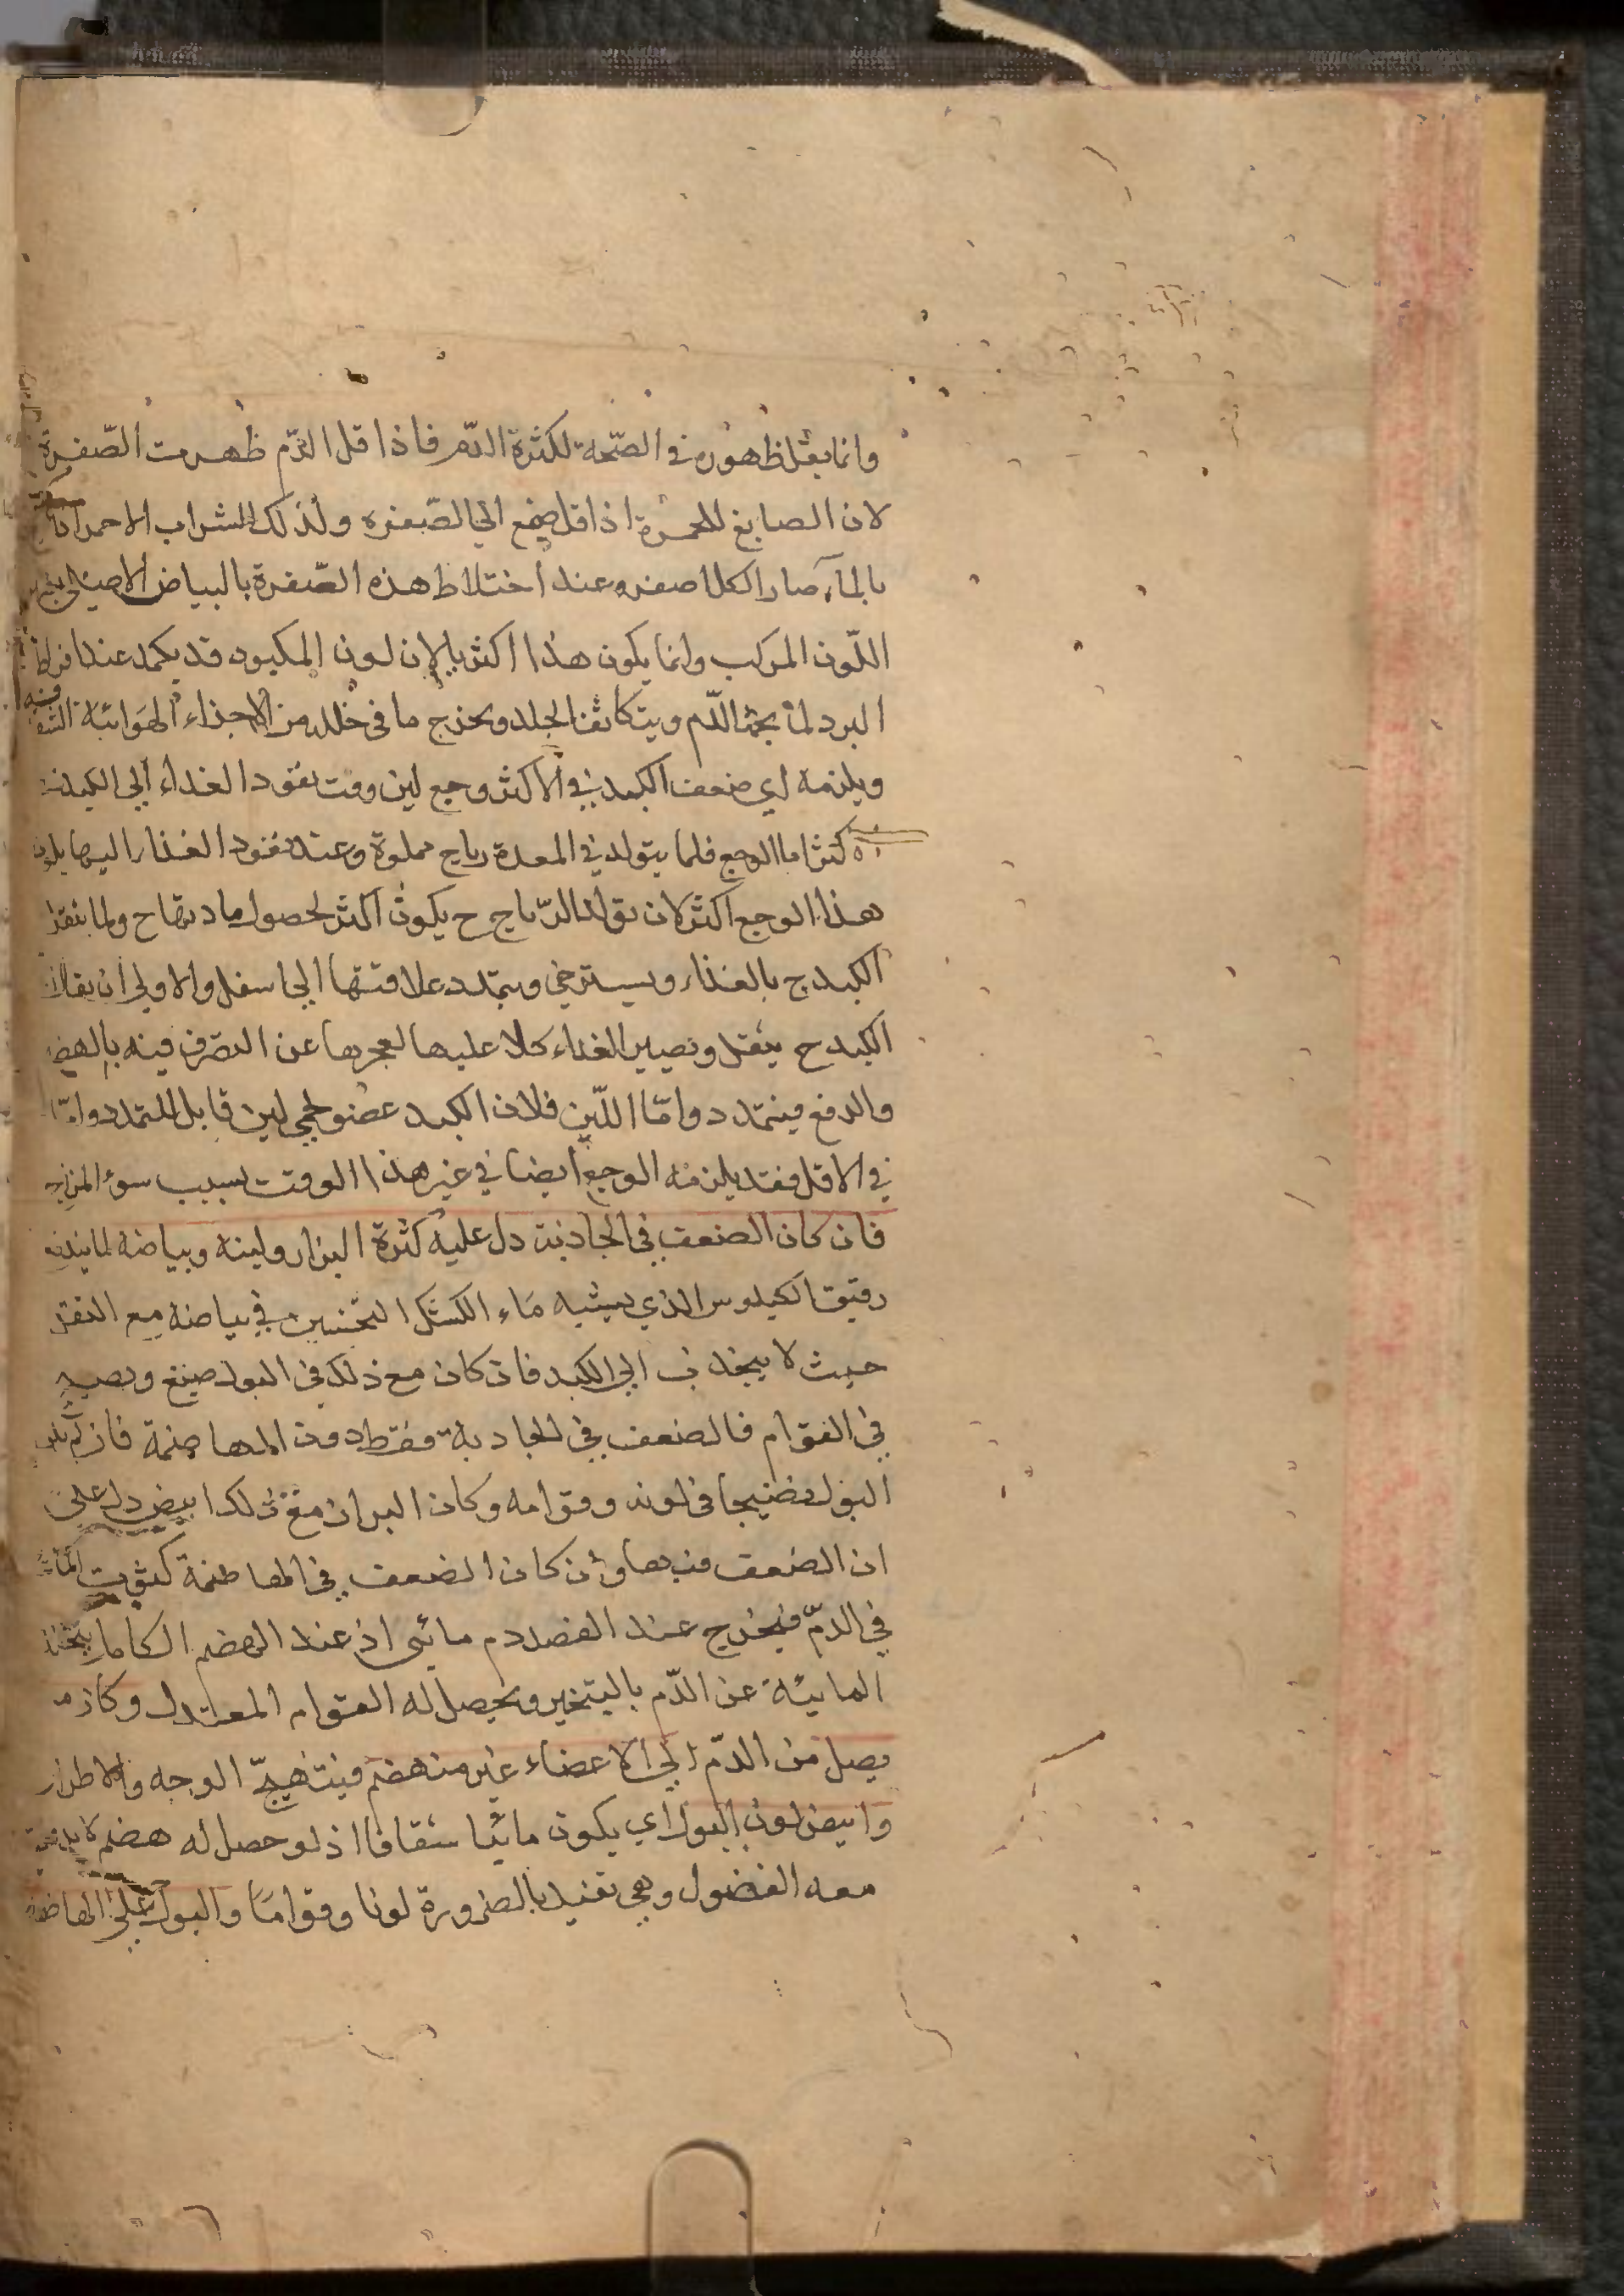 وانما يقل ظهوره في الصّحة لكثرة الدّم فاذا قل الدّم ظهرت الصّفرة
لان الصابغ للحمرة اذا قل صبغ الي الصّفره ولذلك الشراب الاحمر اذا
بالمآء صار الكل اصفر وعند اختلاط هذه الصّفرة بالبياض الاصلي
اللّون المركب وانما يكون هذا اكثريا لان لون المكبود قد يكمد عند افراط
البرد لما يجمد الدّم ويتكاثف الجلد ويخرج ما في خلله من الاجزاء الهوائية
ويلزمه اي ضعف الكبد في الاكثر وجع لين وقت نفوذ الغداء الي الكبد
اكثر اما الوجع فلما يتولد في المعدة رياح مملوة وعند نفوذ الغذاء اليها
هذا الوجع اكثر لان تولد الرّياح ح يكون اكثر لحصول مادتها ح ولما يثقل
الكبد ح بالغذاء ويسترخي ويتمدد علاقتها الي اسفل والاولي ان يقال ان
الكبد ح يثقل ويصير الغداء كلا عليها لعجزها عن التصرف فيه بالهضم
والدفع فيتمدد وامّا اللّين فلان الكبد عضو لحمي لين قابل للتمدد وامّا
في الاقل فقد يلزمه الوجع ايضا في غير هذا الوقت بسبب سوء المزاج
فان كان الضعف في الجاذبة دل عليه كثرة البراز ولينه وبياضه لما يندفع
رقيق الكيلوس الذي يشبه مَاء الكشك الثخين في بياضه مع الثفل
حيث لا ينجذب الي الكبد فان كان مع ذلك في البول صبغ ونضج
في القوام فالضعف في الجاذبة فقط دون الهاضمة فان لم يكن
البول نضيجا في لونه وقوامه وكان البراز مع ذلك ابيض دل علي
ان الضعف فيهما وان كان الضعف في الهاضمة كثرت المائية
في الدّم فيخرج عند الفصد دم مائي اذ عند الهضم الكامل
المائية عن الدّم بالتبخير ويحصل له القوام المعتدل وكان ما
يصل من الدّم الي الاعضاء غير منهضم فيتهيجّ الوجه والاطراف
وابيض لون البول اي يكون مائيا شفافا اذ لو حصل له هضم لاندفعت
معه الفضول وهي تفيد بالضرورة لونا وقوامًا والبول علي الهاضمة